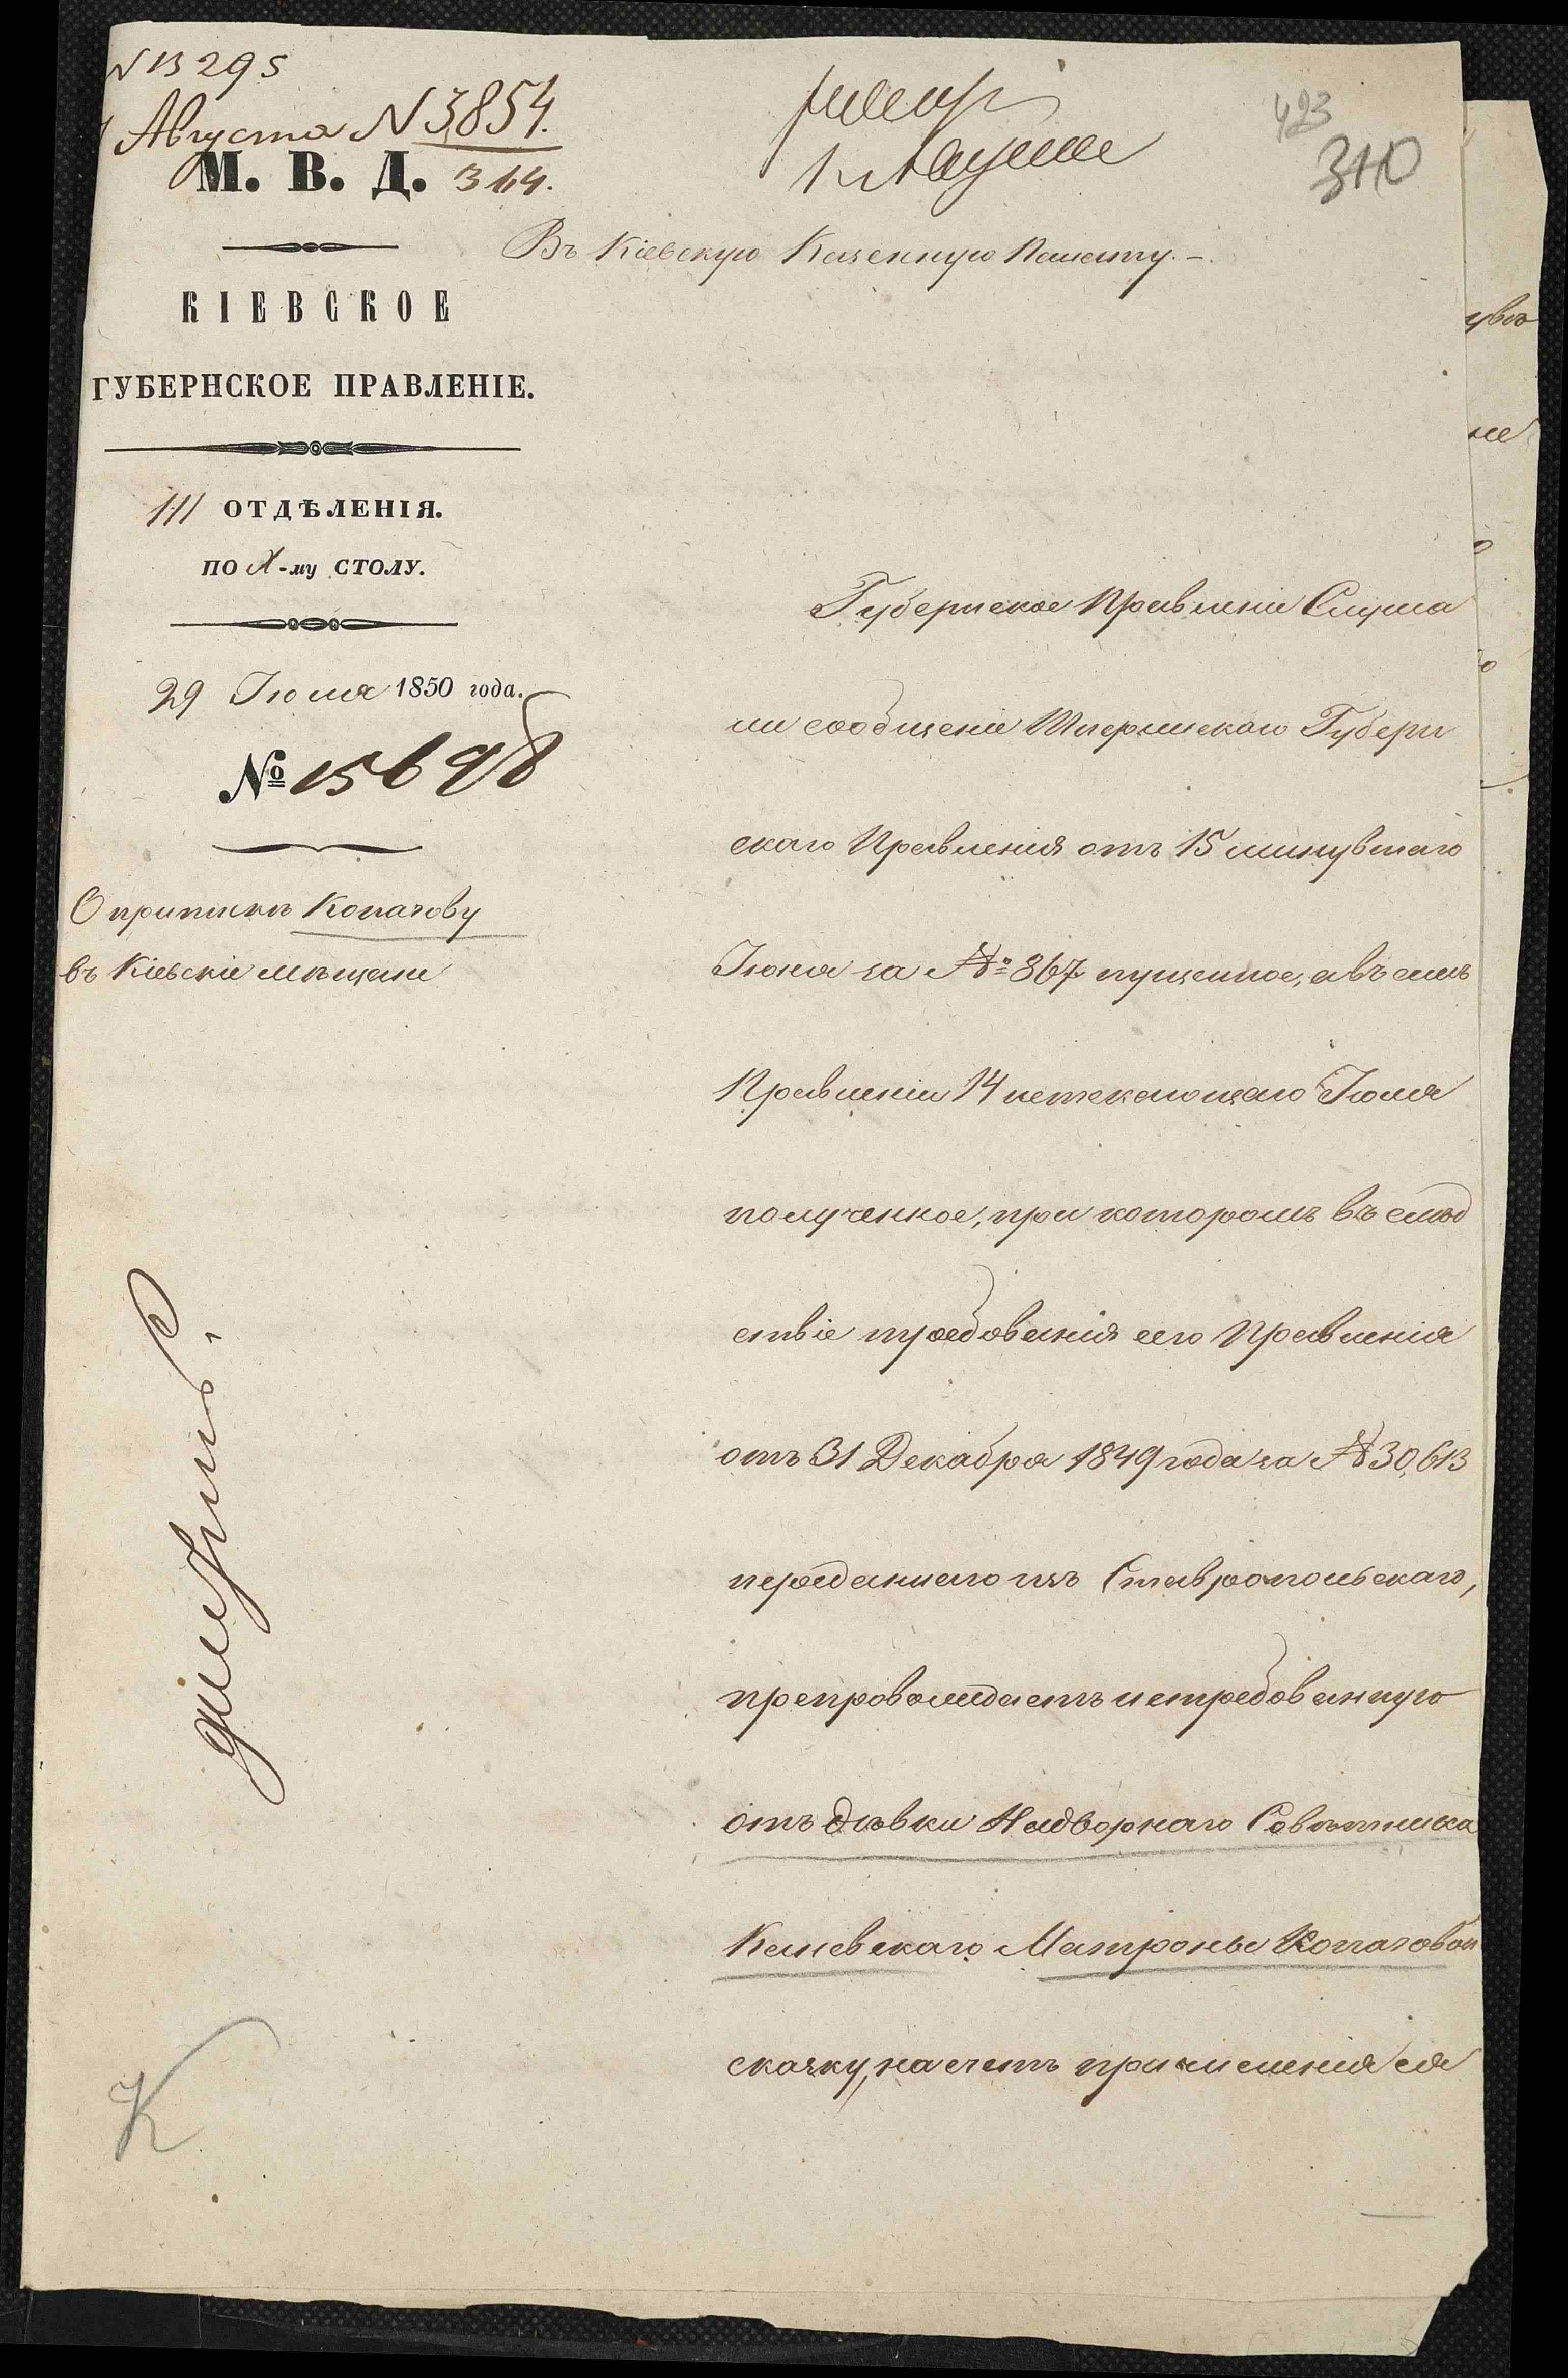 N 13295
Августа N 3854.
314.
1 Августа
423
310
М. В. Д.
КІЕВСКОЕ
ГУБЕРНСКОЕ ПРАВЛЕНІЕ.
III ОТДѢЛЕНІЯ.
ПО X-му СТОЛУ.
29 Іюля 1850 года.
№ 15698
О припискѣ Копачову
въ Кіевскіе мѣщане
Въ Кіевскую Казенную Палату.-
Губернское Правленіе Слуша
ли сообщеніе Губерн
скаго Правленія отъ 15 минувшаго
Іюня за № 867 пущенное, а въ семъ
Правленіи 14 истекающаго Іюля
полученное, при которомъ въ слѣд
ствіе требованія сего Правленія
отъ 31 Декабря 1849 года за № 30,613
переданнаго изъ Ставропольскаго,
препровождаетъ истребованную
отъ дѣвки Надворнаго Совѣтника
Матроны Копачовой
сказку, на счетъ причисленія ея
К